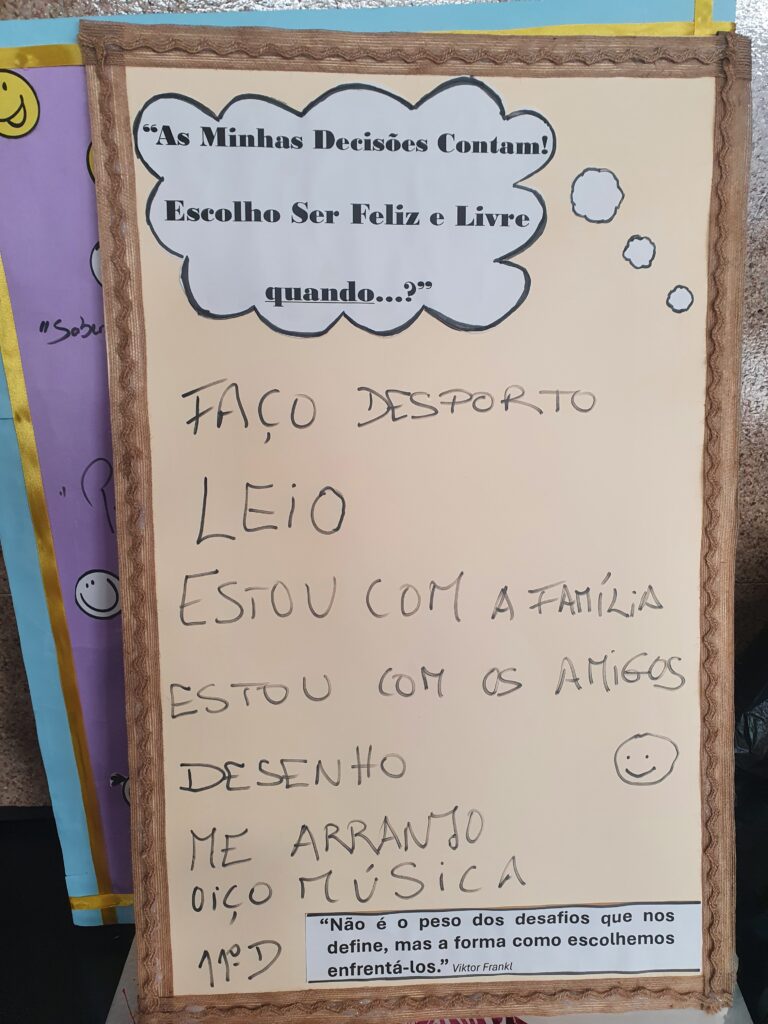 “As Minhas Decisões Contam!
Escolho Ser Feliz e Livre
quando...?”
FAÇO DESPORTO
LEIO
ESTOU COM A FAMÍLIA
ESTOU COM OS AMIGOS
DESENHO
ME ARRANJO
OIÇO MÚSICA
11º D
“Não é o peso dos desafios que nos
define, mas a forma como escolhemos
enfrentá-los.” Viktor Frankl